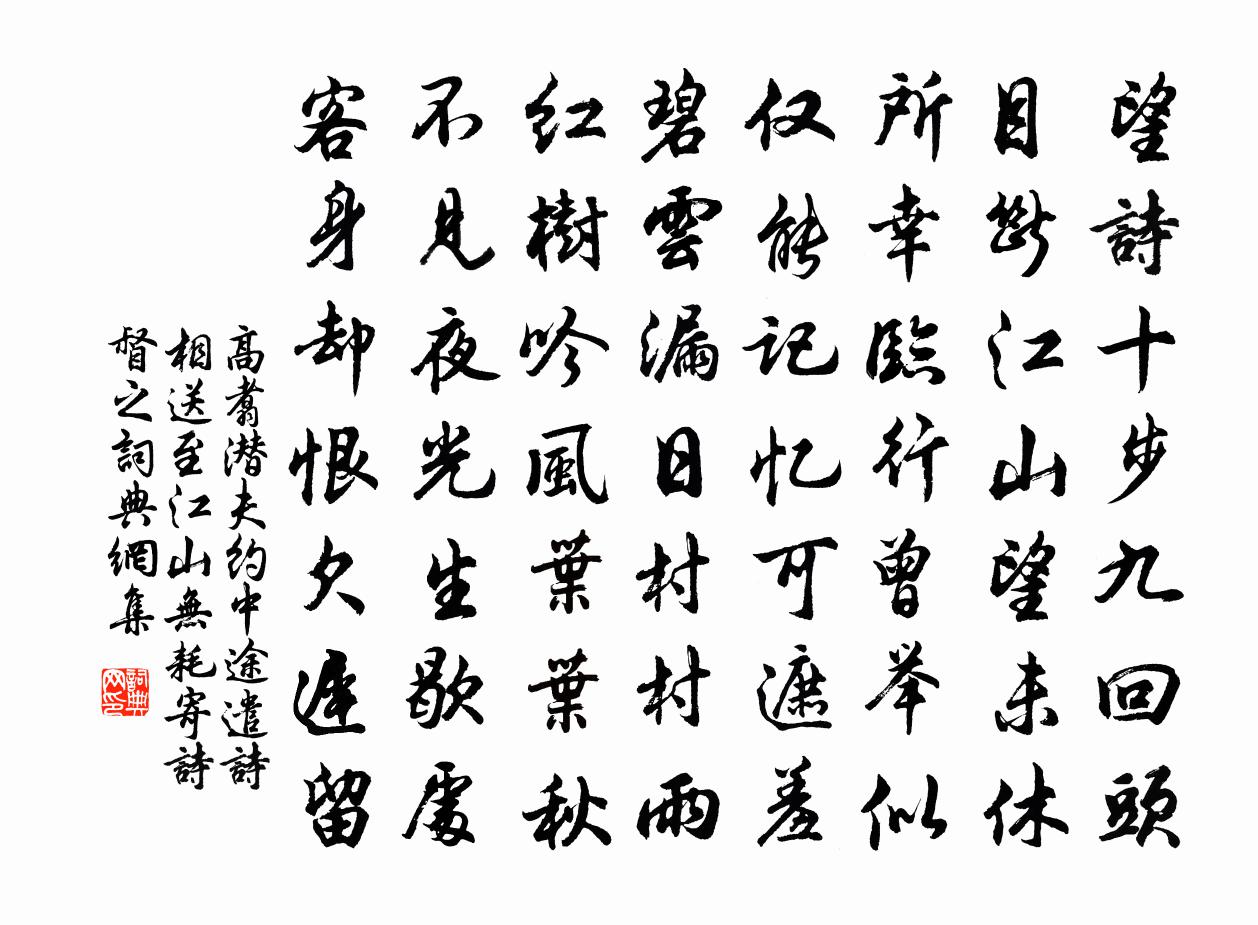 望詩十步九回頭
目斷江山望未休
所幸臨行曾举似
仅能记忆可遮羞
碧雲漏日村村雨
红樹吟風葉葉秋
不見夜光生歇處
客身却恨欠遲留
高翥潜夫約中途遣詩
相送至江山無耗寄詩
督之詞典網集
詞典网印